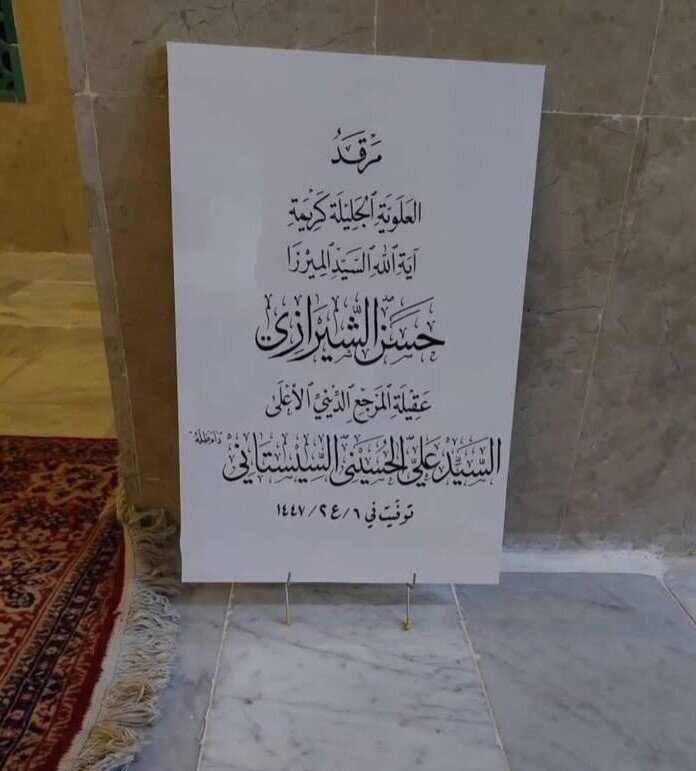 مَرْقَدُ
العَلَوِيَّةِ الجَلِيلَةِ كَرِيمَةِ
آيَةِ اللهِ السَّيِّدِ المِيرْزَا
حَسَن الشِّيرَازِيّ
عَقِيلَةِ المَرْجَعِ الدِّينِيِّ الأَعْلَى
السَّيِّد عَلِيّ الحُسَيْنِيّ السِّيسْتَانِيّ دَامَ ظِلُّهُ
توفّيت في ٦ / ع٢ / ١٤٤٧